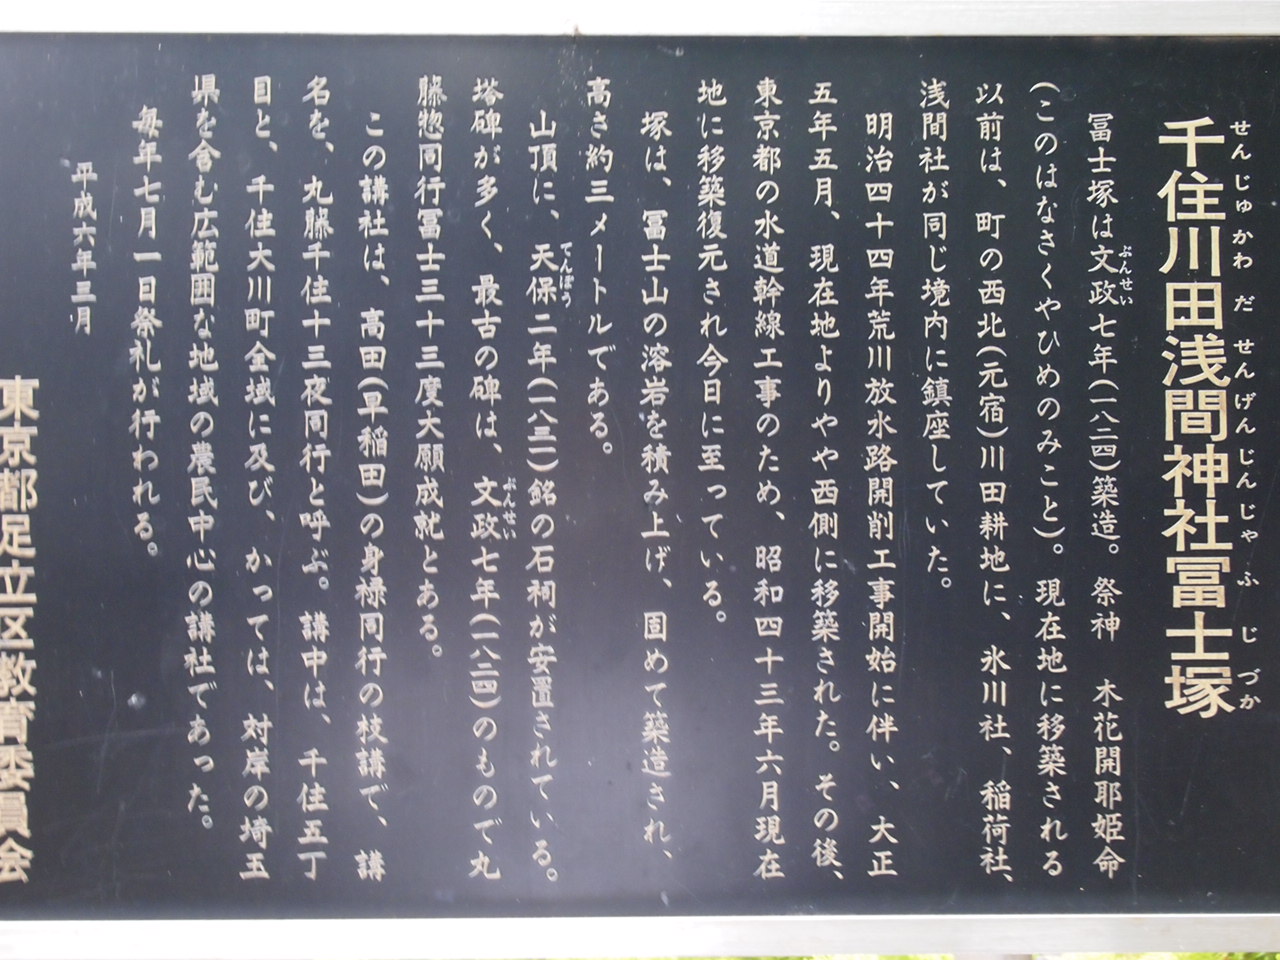 千住川田浅間神社冨士塚
せんじゅかわだせんげんじんじゃふじづか
冨士塚は文政七年(一八二四)築造。祭神 木花開耶姫命
ぶんせい
(このはなさくやひめのみこと)。現在地に移築される
以前は、町の西北(元宿)川田耕地に、氷川社、稲荷社、
浅間社が同じ境内に鎮座していた。
明治四十四年荒川放水路開削工事開始に伴い、大正
五年五月、現在地よりやや西側に移築された。その後、
東京都の水道幹線工事のため、昭和四十三年六月現在
地に移築復元され今日に至っている。
塚は、冨士山の溶岩を積み上げ、固めて築造され、
高さ約三メートルである。
山頂に、天保二年(一八三一)銘の石祠が安置されている。
てんぽう
塔碑が多く、最古の碑は、文政七年(一八二四)のもので丸
ぶんせい
藤惣同行冨士三十三度大願成就とある。
この講社は、高田(早稲田)の身禄同行の枝講で、講
名を、丸藤千住十三夜同行と呼ぶ。講中は、千住五丁
目と、千住大川町全域に及び、かつては、対岸の埼玉
県を含む広範囲な地域の農民中心の講社であった。
毎年七月一日祭礼が行われる。
平成六年三月
東京都足立区教育委員会